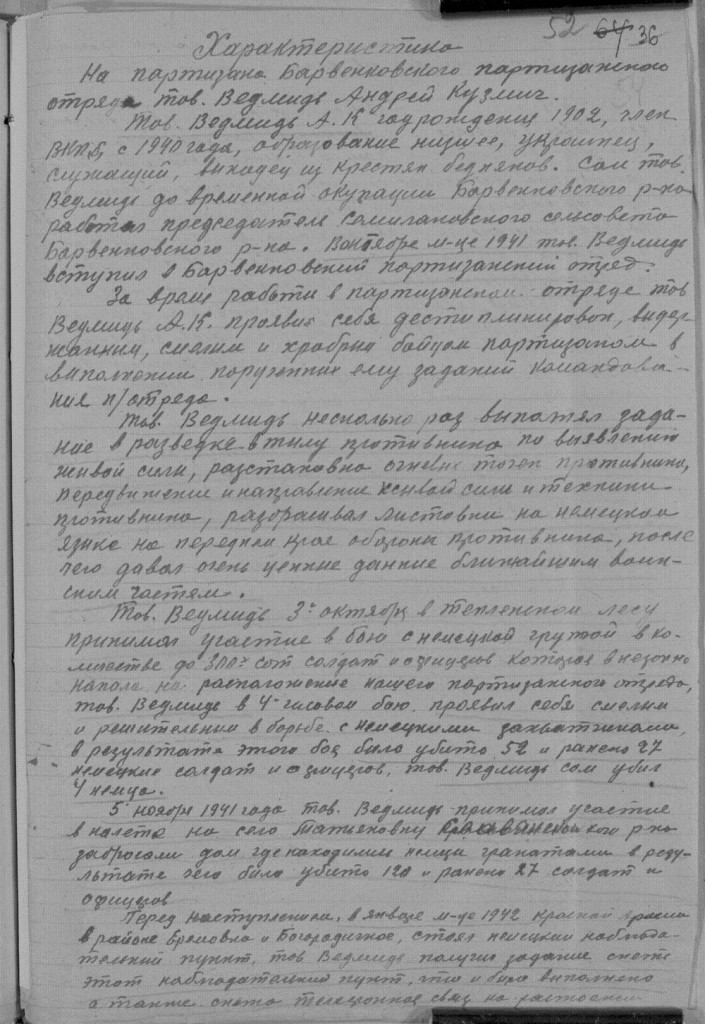 52 64 36
Характеристика
На партизана Барвенковского партизанского
отряда тов. Ведмидь Андрей Кузмич.
Тов. Ведмидь А.К год рождения 1902, член
ВКПб, с 1940 года, образование низшее, украинец,
служащий, виходец из крестян бедняков. Сам тов.
Ведмидь до временной окупации Барвенковского р-на
работал председателем сельсовета
Барвенковского р-на. В октябре м-це 1941 тов. Ведмидь
вступил в Барвенковский партизанский отряд.
За время работи в партизанском отряде тов
Ведмидь А.К. проявил себя дестиплинирован, видер-
жанним, смелим и храбрим бойцом партизаном в
выполнении порученних ему заданий командова-
ния п/отряда.
Тов. Ведмидь несколько раз выполнял зада-
ние в разведке в тилу противника по выявлению
живой сили, разстановка огневих точек противника,
передвижение и направление живой сили и техники
противника, разбрасивал листовки на немецком
языке на переднем крае оборони противника, после
чего давал очень ценние данние ближайшим воин-
ским частям.
Тов. Ведмидь 3го октября в тепленском лесу
принимал участие в бою с немецкой групой в ко-
личестве до 300 сот солдат и офицеров которая внезапно
напала на расположение нашего партизанского отряда,
тов. Ведмидь в 4х часовом бою проявил себя смелим
и решительним в борьбе с немецкими захватчиками,
в результате этого боя било убито 52 и ранено 27
немецких солдат и офицеров, тов. Ведмидь сам убил
4 немца.
5 ноября 1941 года тов. Ведмидь принимал участие
в налете на село Татьяновку р-на
забросали дом где находились немци гранатами в резу-
льтате чего било убито 120 и ранено 27 солдат и
офицеров
Перед наступлением, в январе м-це 1942 красной армии
в районе и Богородичное, стоял немецкий наблюда-
телний пункт, тов Ведмидь получил задание снять
этот наблюдателний пункт, что и било выполнено
а также снята телефонная связь на растоянии